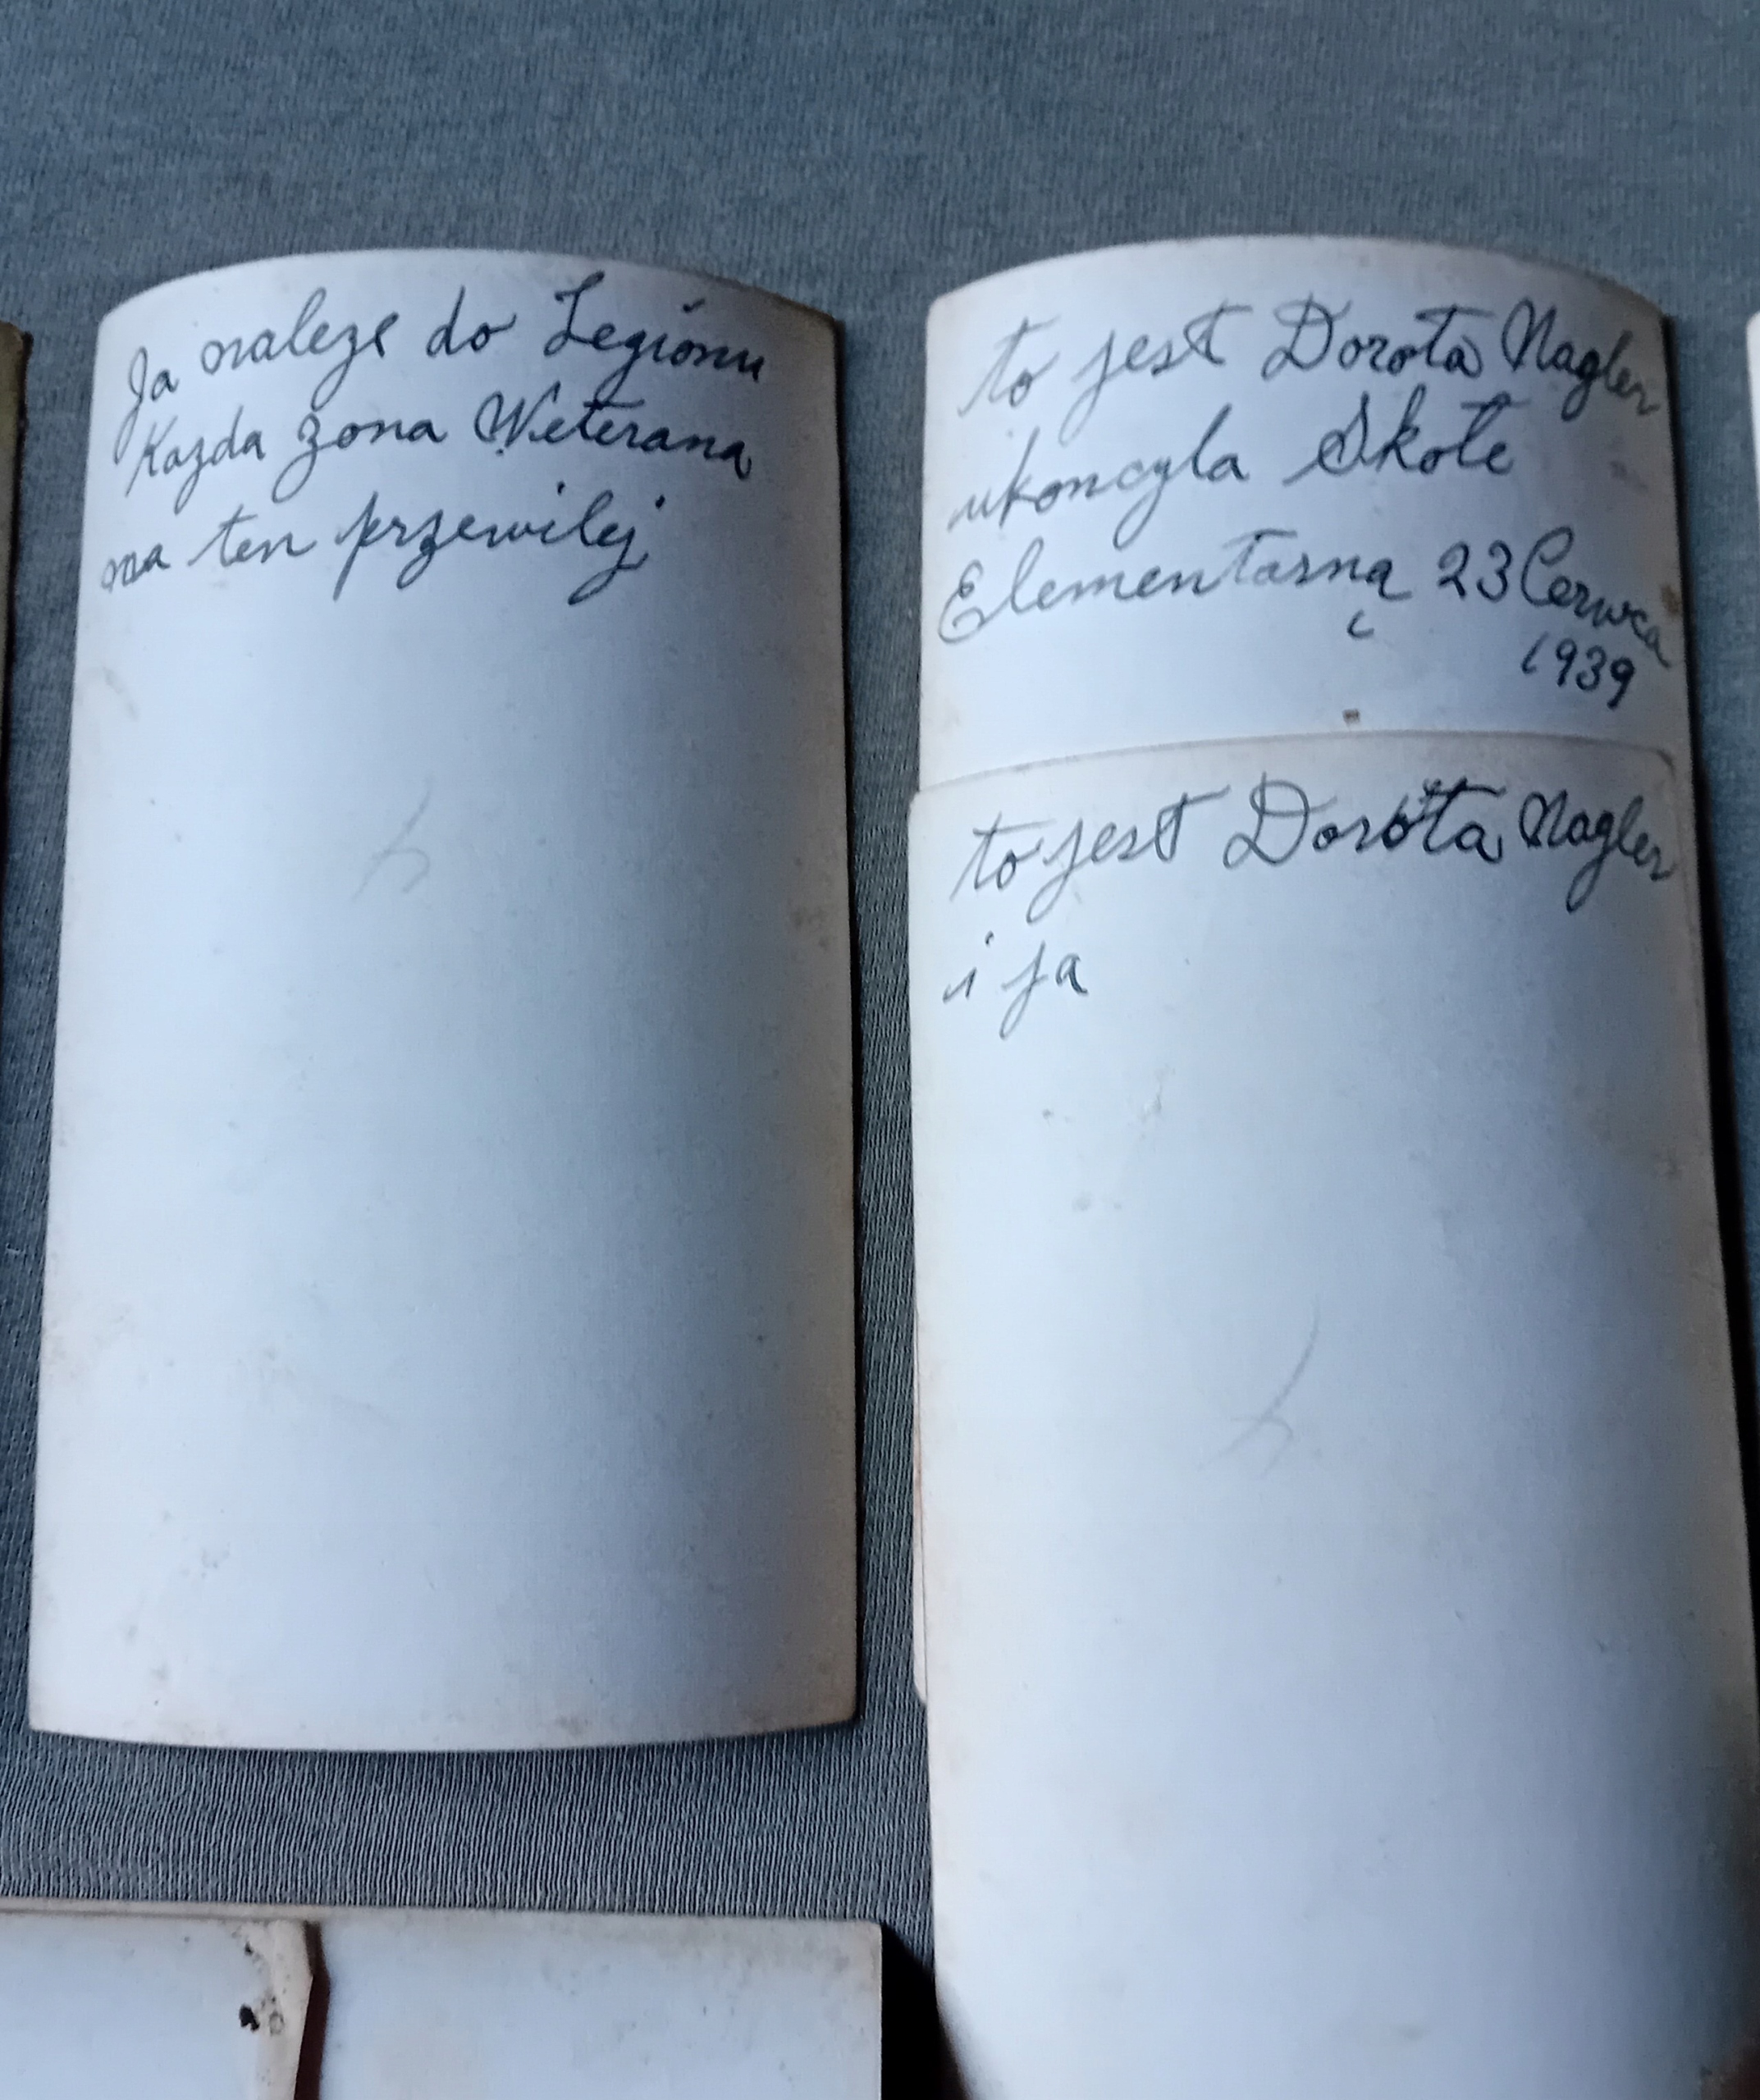 Ja naleze do Legionu
Kazda zona Weterana
ma ten przewilej
to jest Dorota Nagler
ukoncyla Skole
Elementarna 23 Cerwca
1939
to jest Dorota Nagler
i ja